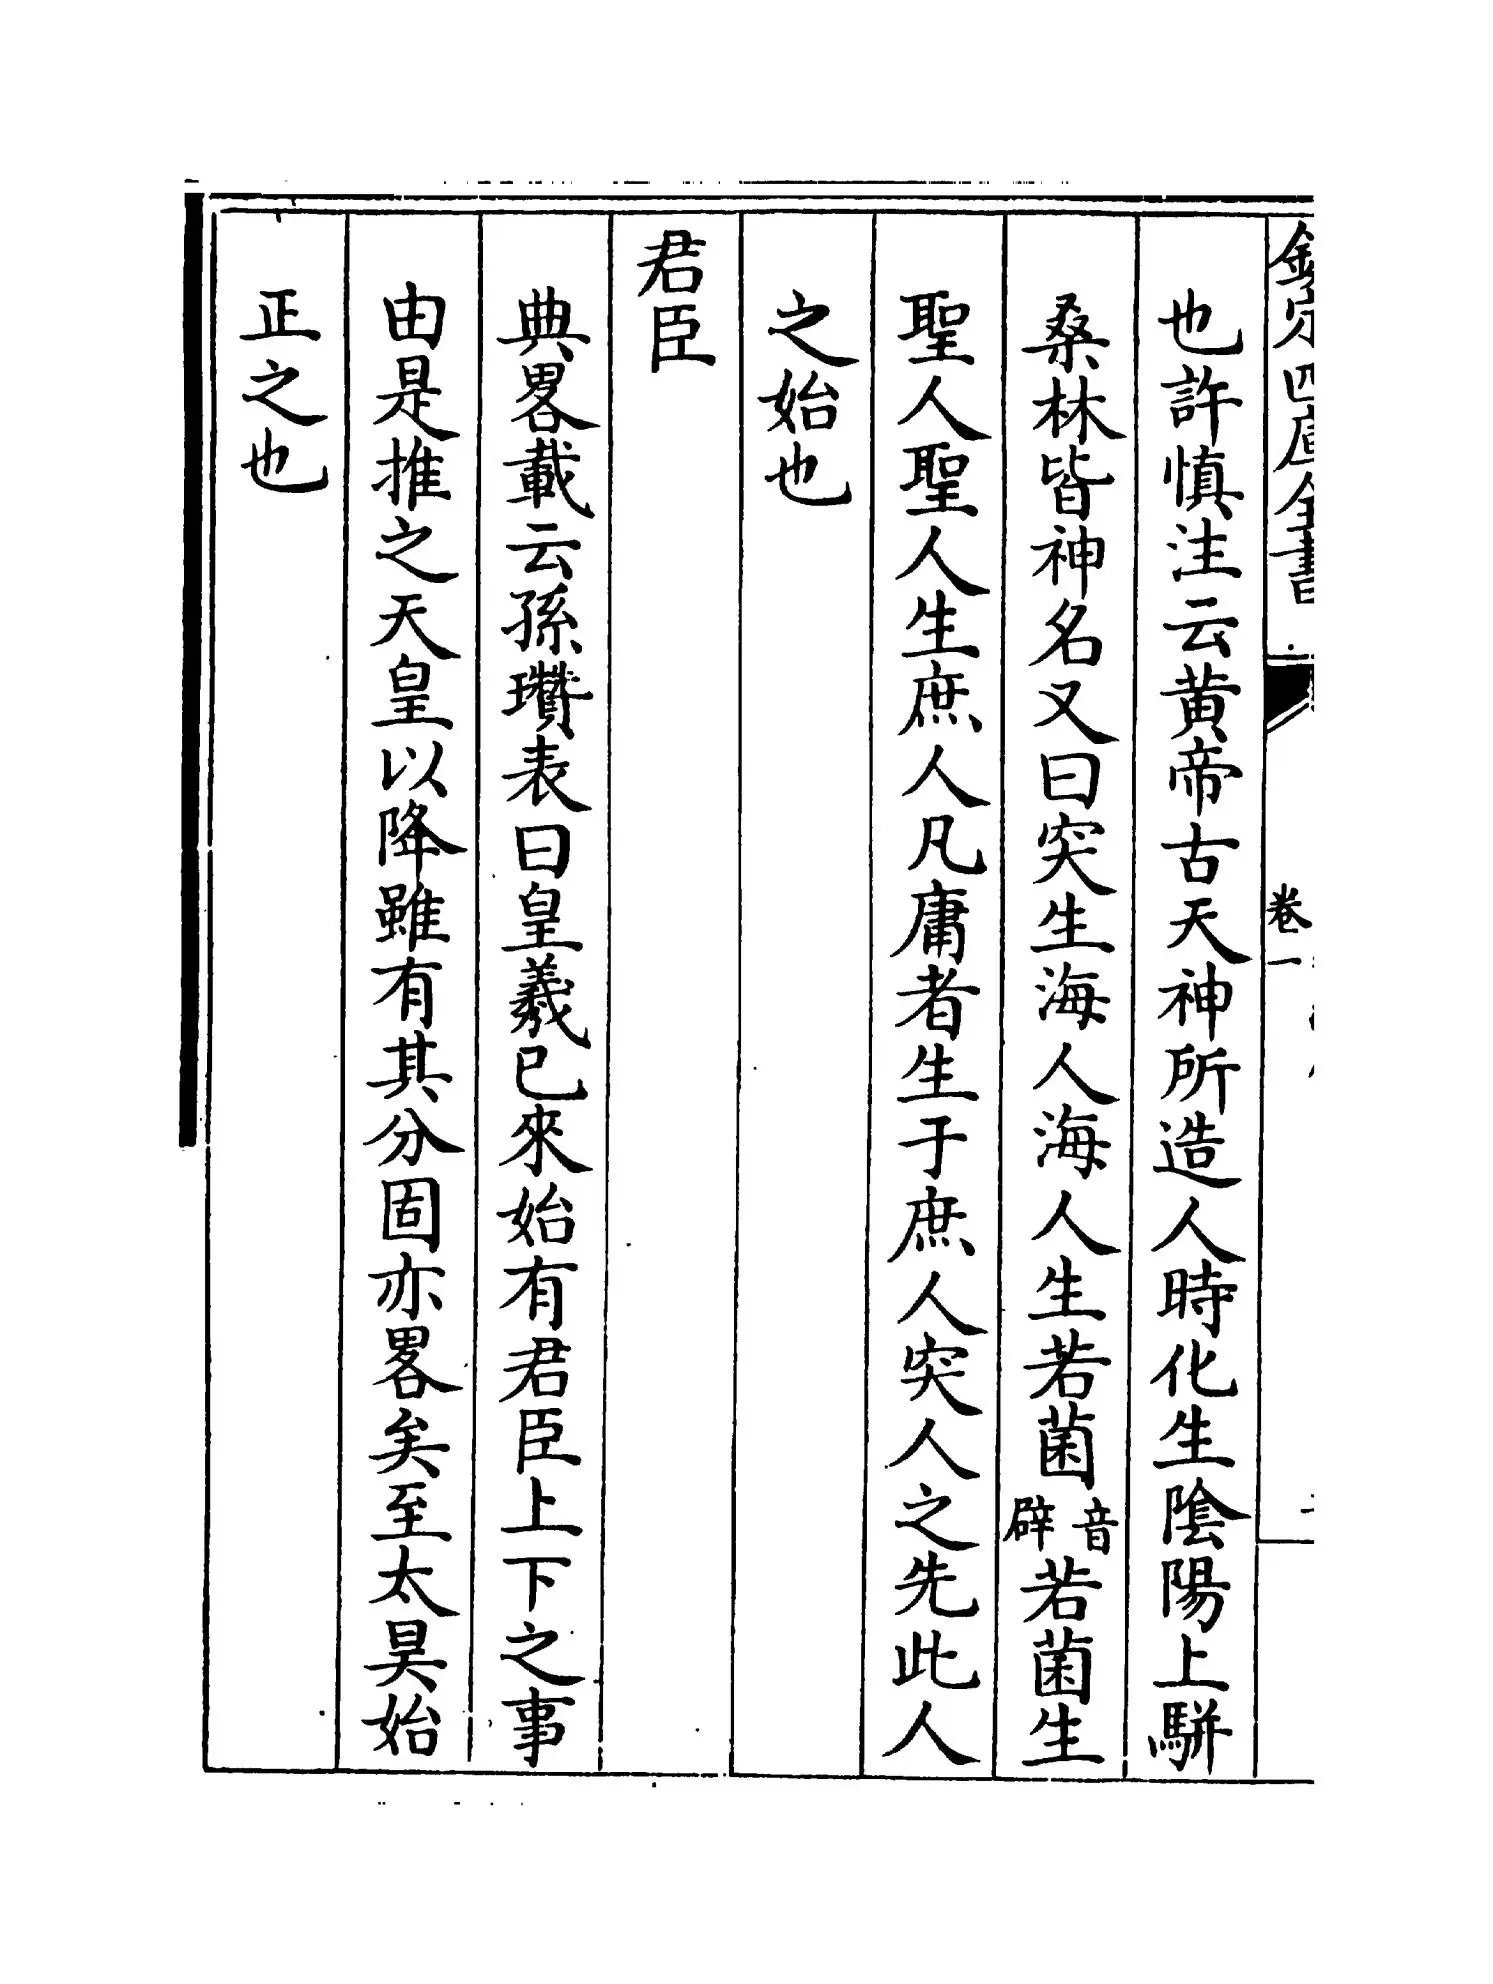 欽定四庫全書
卷一
也許慎注云黄帝古天神所造人時化生隂陽上駢
桑林皆神名又曰突生海人海人生若菌音辟若菌生
聖人聖人生庶人凡庸者生于庶人突人之先此人
之始也
君臣
典畧載云孫瓚表曰皇羲已來始有君臣上下之事
由是推之天皇以降雖有其分固亦畧矣至太昊始
正之也